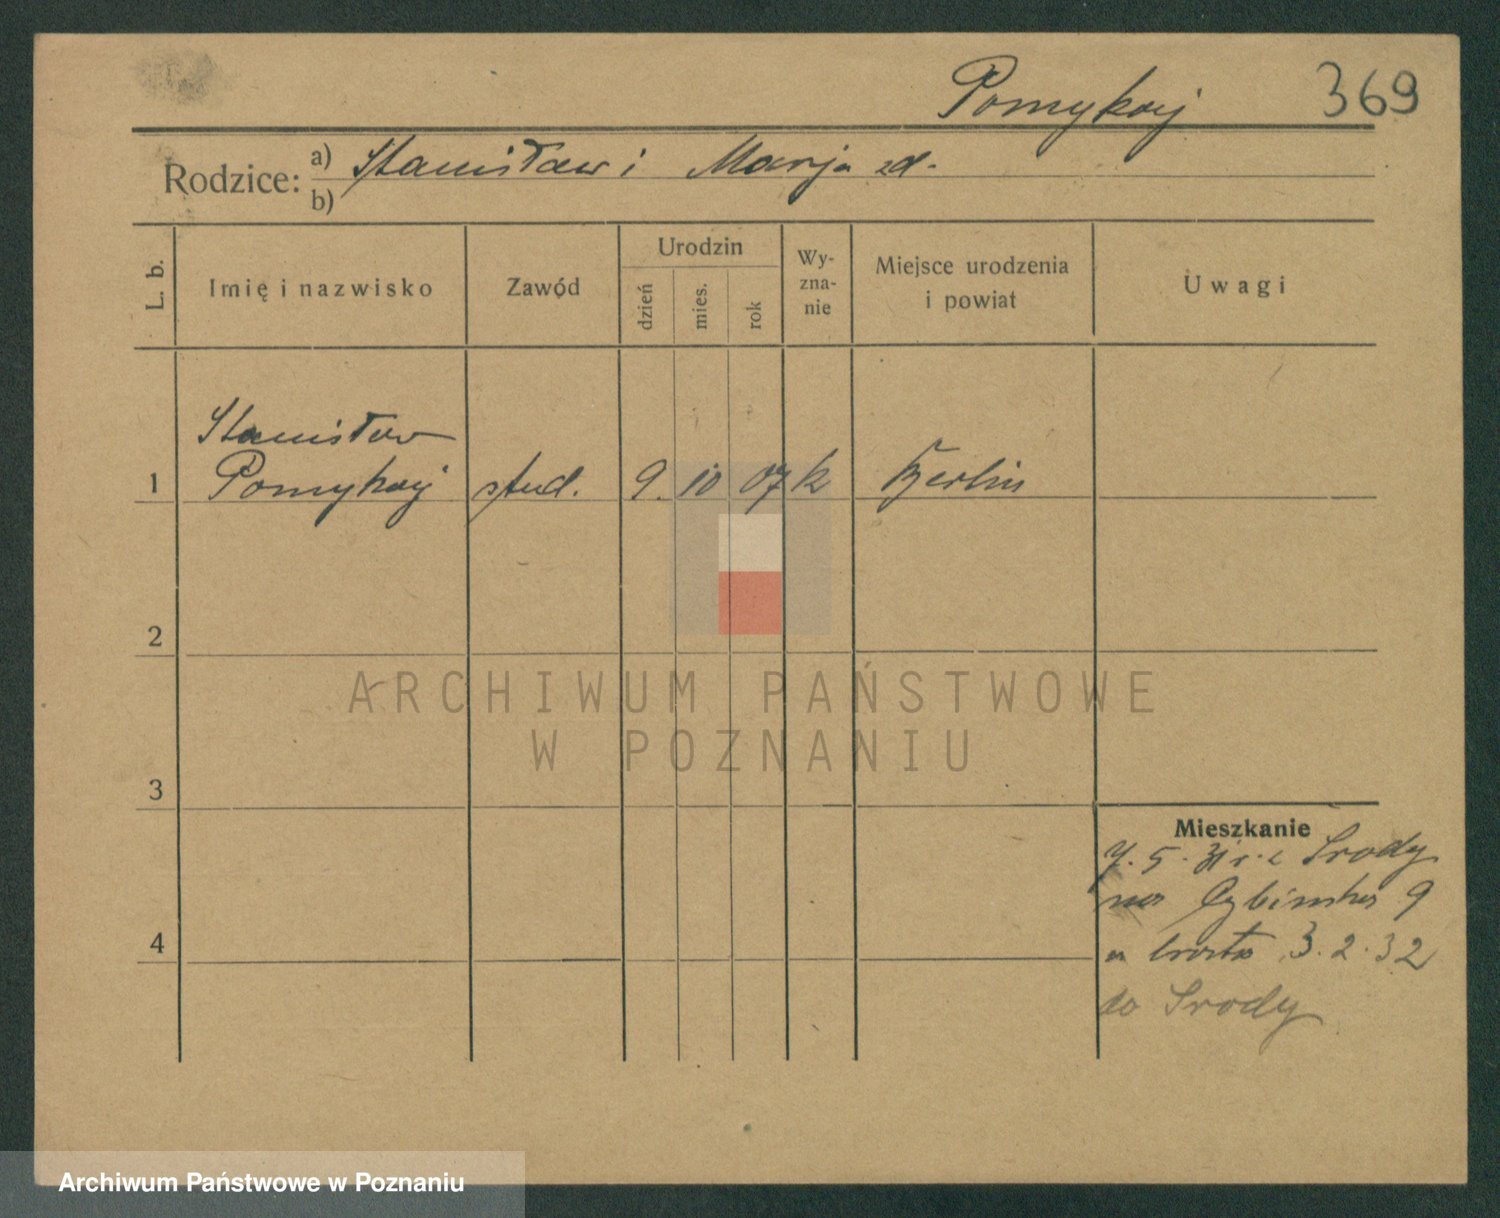 Pomykaj 369
Rodzice: a) Stanisław i Marja zd.
b)
L. b. Imię i nazwisko Zawód Urodzin dzień mies. rok Wy-zna-nie Miejsce urodzenia i powiat Uwagi
Stanisław
1 Pomykaj stud. 9. 10 07 k Berlin
2
ARCHIWUM PAŃSTWOWE
W POZNANIU
3
Mieszkanie
5. 31 r. z Środy
na Cybińska 9
4 3.2.32
do Środy
Archiwum Państwowe w Poznaniu